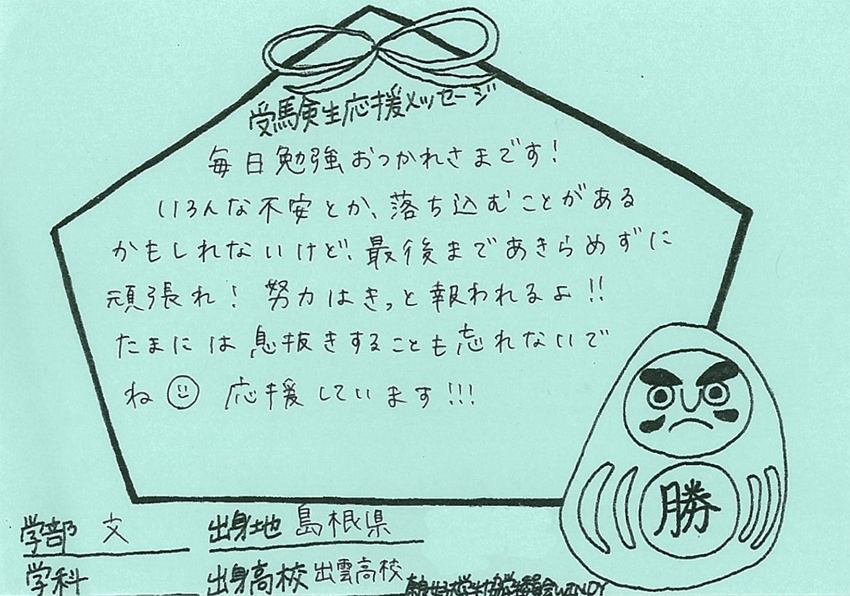 受験生応援メッセージ
毎日勉強おつかれさまです!
いろんな不安とか、落ち込むことがある
かもしれないけど、最後まであきらめずに
頑張れ! 努力はきっと報われるよ!!
たまには息抜きすることも忘れないで
ね 応援しています!!!
勝
学部 文 出身地 島根県
学科 出身高校 出雲高校
WINDY